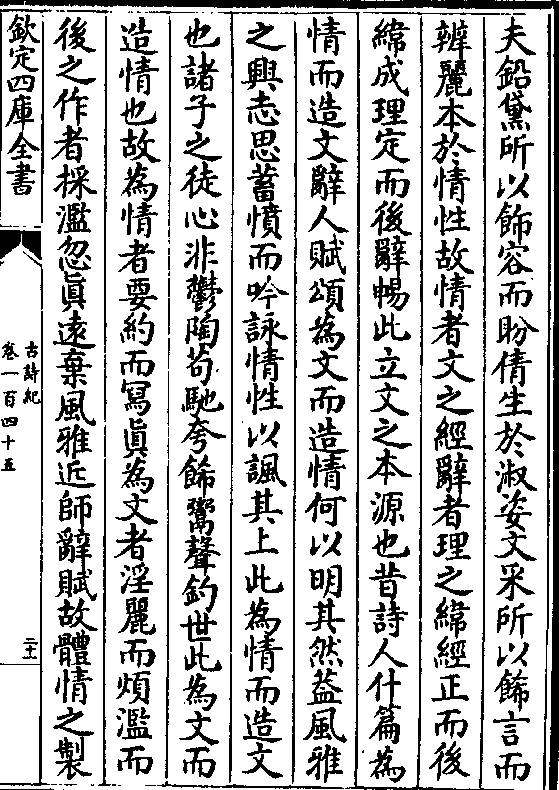 夫鉛黛所以飾容而盼倩生於淑姿文采所以飾言而
辨麗本於情性故情者文之經辭者理之緯經正而後
緯成理定而後辭暢此立文之本源也昔詩人什篇為
情而造文辭人賦頌為文而造情何以明其然葢風雅
之興志思蓄憤而吟詠情性以諷其上此為情而造文
也諸子之徒心非鬱陶茍馳夸飾鬻聲釣世此為文而
造情也故為情者要約而寫眞為文者淫麗而煩濫而
後之作者採濫忽眞遠棄風雅近師辭賦故體情之製
欽定四庫全書
古詩紀
卷一百四十五
二十